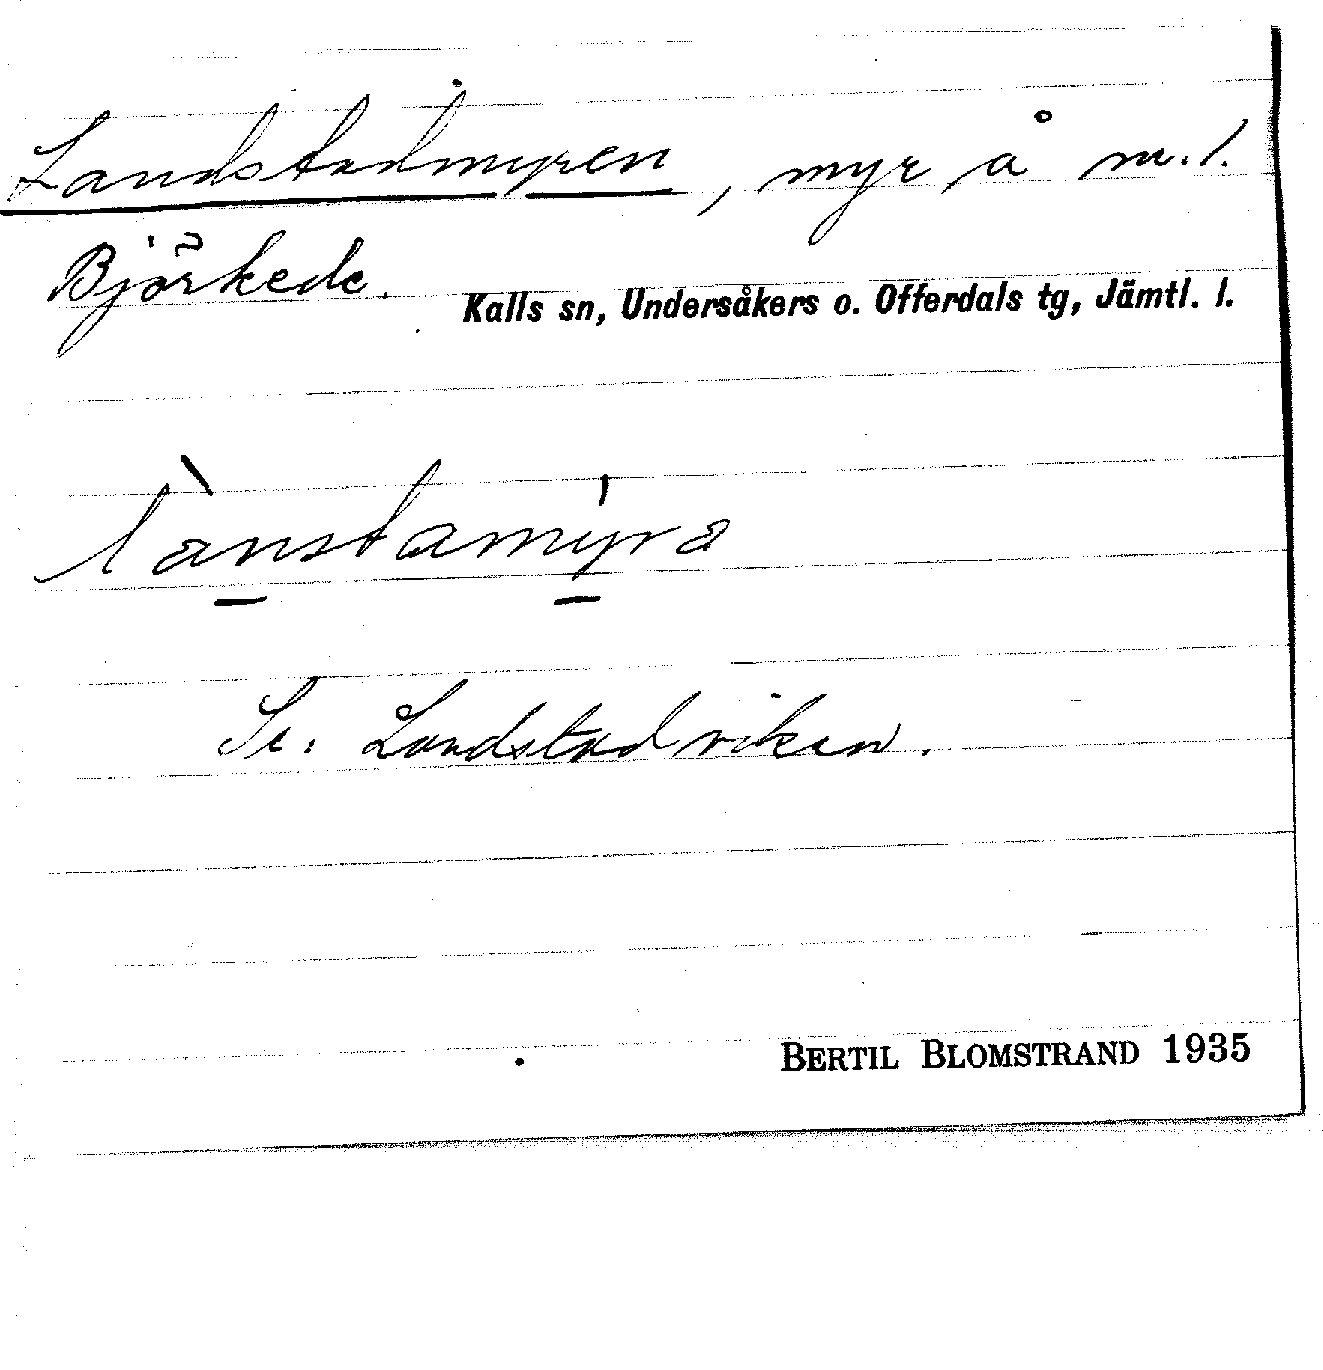 Landstadmyren, myr å m. l.
Björkede.
Kalls sn, Undersåkers o. Offerdals tg, Jämtl. l.
lànstamýra
Se: Landstadviken.
BERTIL BLOMSTRAND 1935